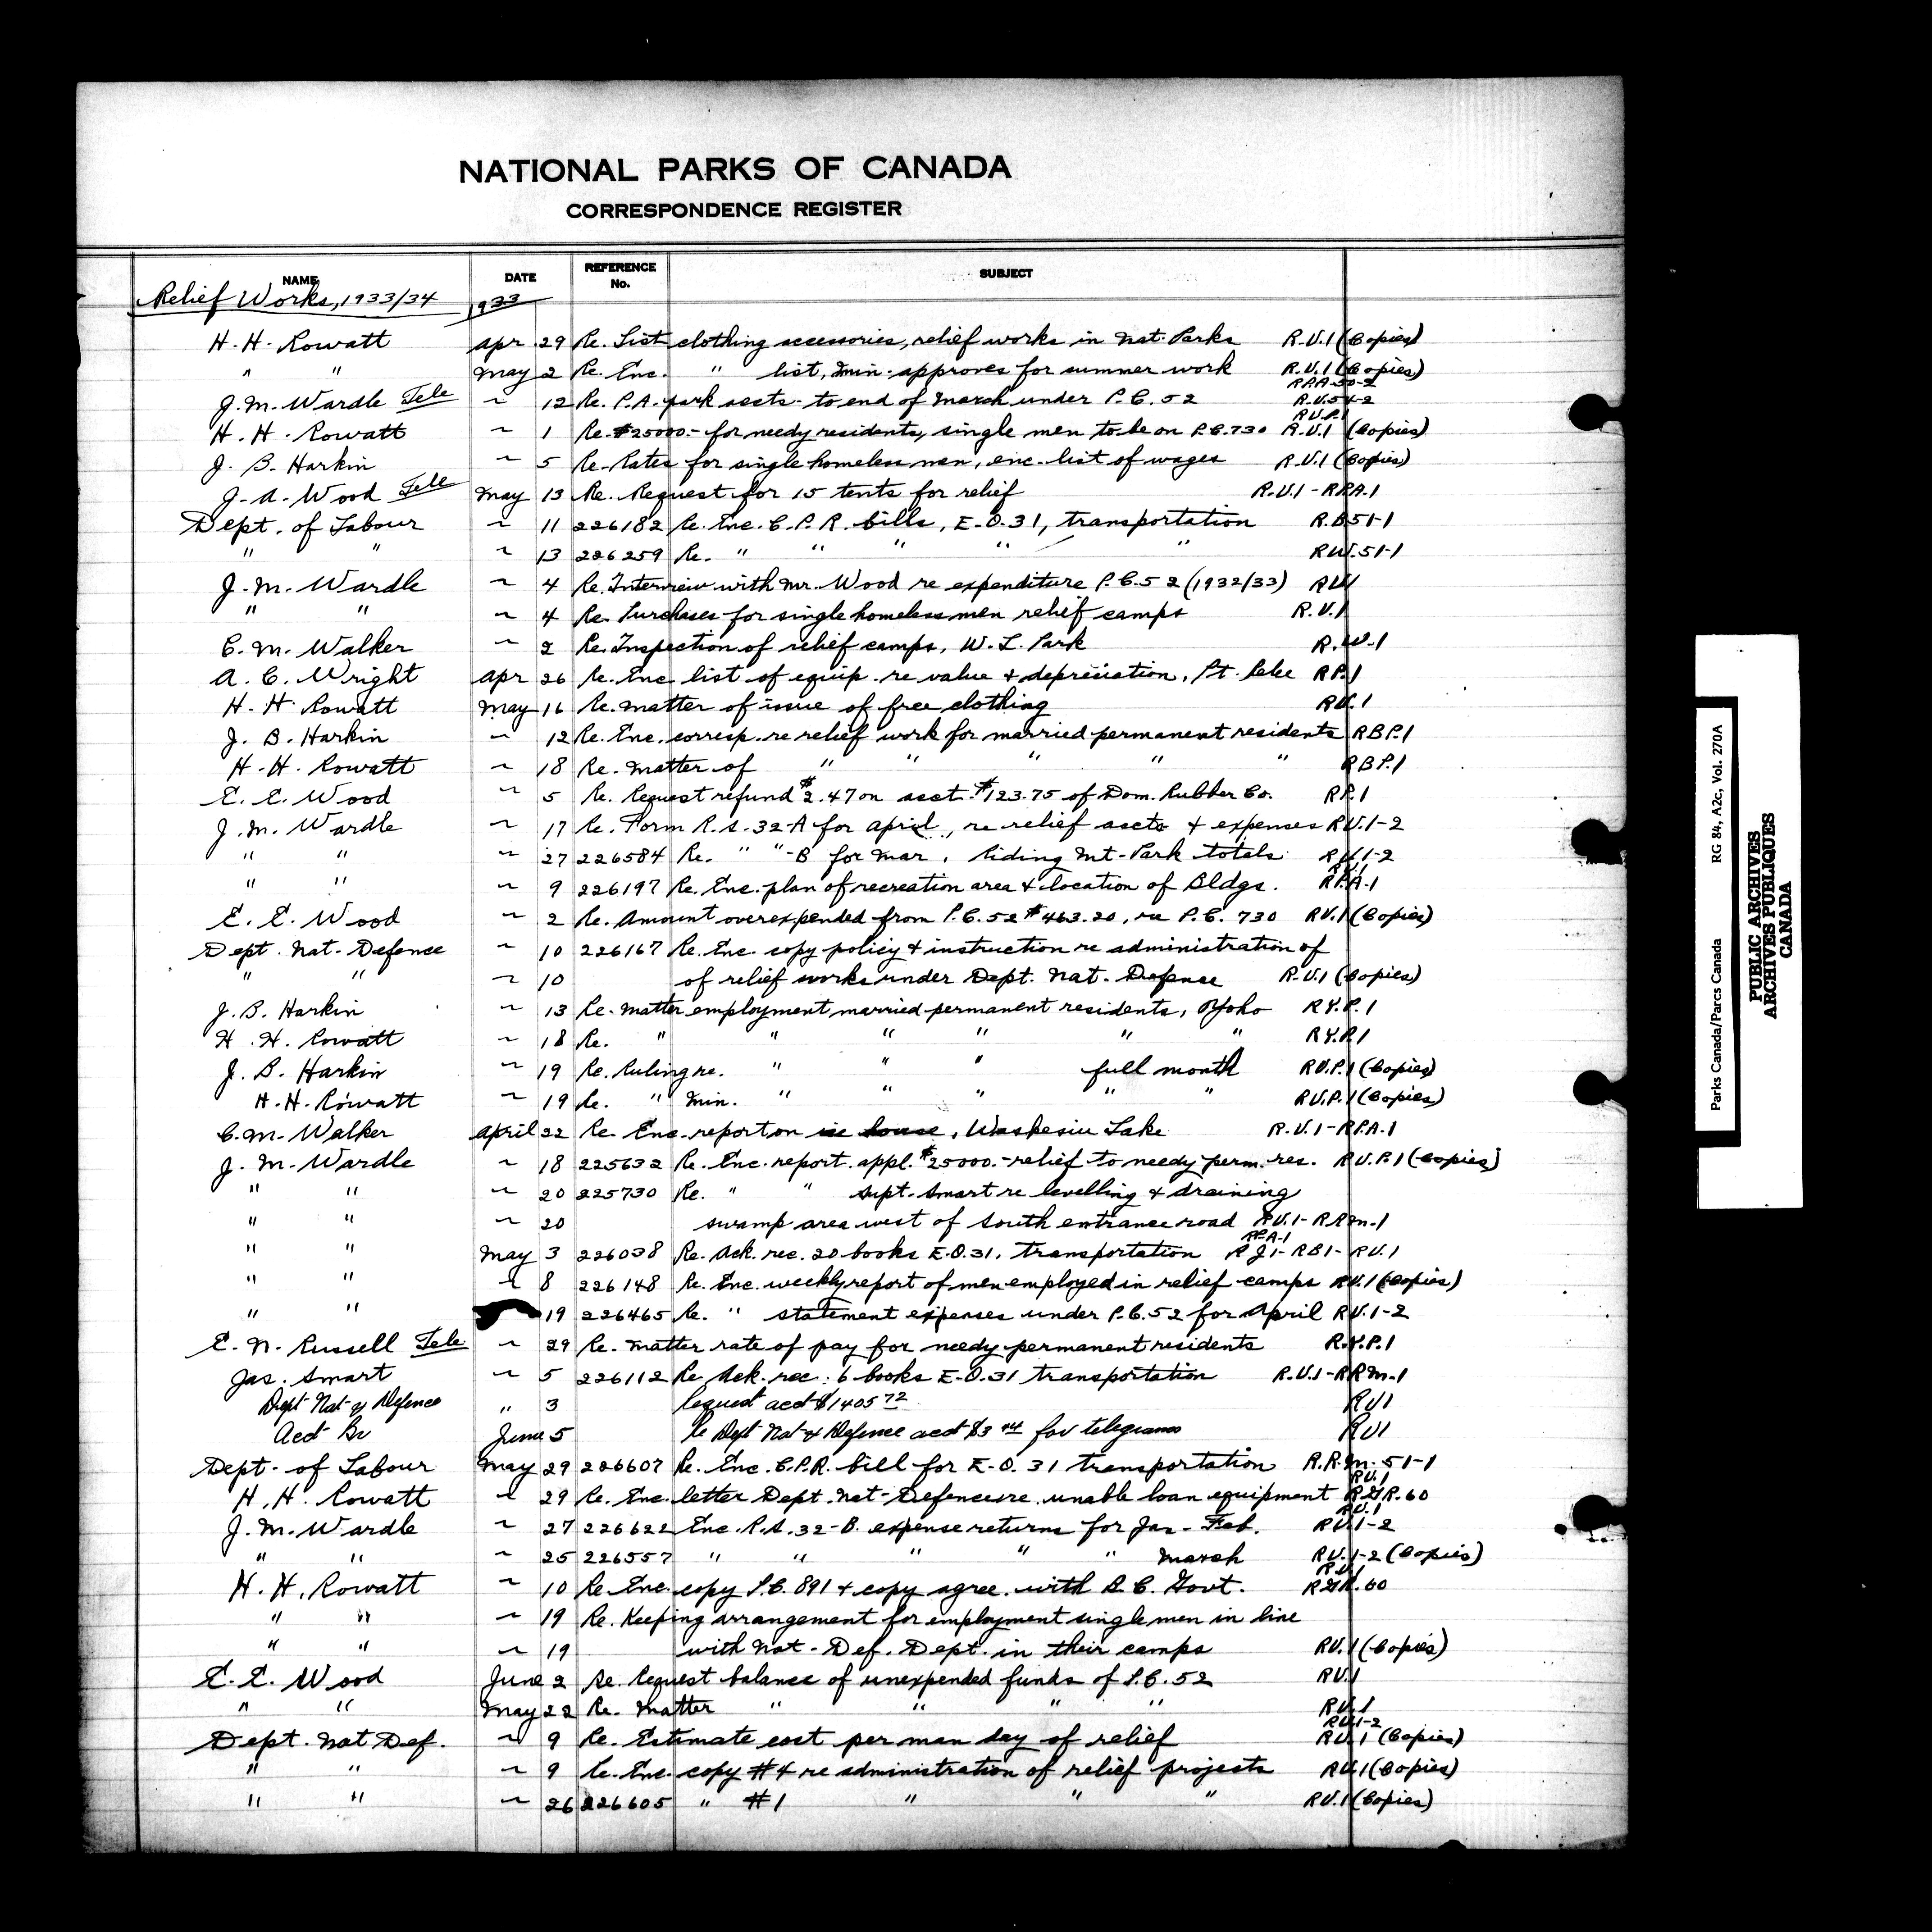 NATIONAL PARKS OF CANADA
CORRESPONDENCE REGISTER
NAME DATE REFERENCE No. SUBJECT
Relief Works, 1933/34 1933
H. H. Rowatt Apr 29 Re. List clothing accessories, relief works in Nat. Parks R.U.1 (Copies)
" " May 2 Re. Enc. " list, Min. approves for summer work R.U.1 (Copies)
J. M. Wardle Tele ~ 12 Re. P.A. park accts. to end of March under P.C. 52 RPA-50-2 R.U.5
H. H. Rowatt ~ 1 Re. $25000.- for needy residents, single men to be on P.C. 730 RUP.1 R.U.1 (Copies)
J. B. Harkin ~ 5 Re. Rates for single homeless men, enc. list of wages R.U.1 (Copies)
J. A. Wood Tele May 13 Re. Request for 15 tents for relief R.U.1 - RPA.1
Dept. of Labour ~ 11 226182 Re. Enc. C.P.R. bills, E.O.31, transportation R.B51-1
" " ~ 13 226259 Re. " " " " " RW.51-1
J. M. Wardle ~ 4 Re. Interview with Mr. Wood re expenditure P.C. 52 (1932/33) RU1
" " ~ 4 Re. Purchases for single homeless men relief camps R.U.1
C. M. Walker ~ 2 Re. Inspection of relief camps, W. L. Park R.W.1
A. C. Wright Apr 26 Re. Enc. list of equip. re value & depreciation, Pt. Pelee RP.1
H. H. Rowatt May 16 Re. Matter of issue of free clothing RU.1
J. B. Harkin ~ 12 Re. Enc. corresp. re relief work for married permanent residents RBP.1
H. H. Rowatt ~ 18 Re. Matter of " " " " " RBP.1
E. E. Wood ~ 5 Re. Request refund $2.47 on acct. $123.75 of Dom. Rubber Co. RP.1
J. M. Wardle ~ 17 Re. Form R.S. 32-A for April, re relief accts & expenses RU.1-2
" " ~ 27 226584 Re. " " -B for Mar. Riding Mt. Park totals RU.1-2
" " ~ 9 226197 Re. Enc. plan of recreation area & location of Bldgs. RPA-1
E. E. Wood ~ 2 Re. Amount overexpended from P.C. 52 $463.20, re P.C. 730 RU.1 (Copies)
Dept. Nat. Defence ~ 10 226167 Re. Enc. copy policy & instruction re administration of
" " ~ 10 of relief works under Dept. Nat. Defence R.U.1 (Copies)
J. B. Harkin ~ 13 Re. Matter employment married permanent residents, Yoho RY.P.1
H. H. Rowatt ~ 18 Re. " " " " " " RY.P.1
J. B. Harkin ~ 19 Re. Ruling re. " " " full month RU.P.1 (Copies)
H. H. Rowatt ~ 19 Re. " Min. " " " " " RU.P.1 (Copies)
C. M. Walker April 22 Re. Enc. report on ice house, Waskesiu Lake R.U.1 - RPA.1
J. M. Wardle ~ 18 225632 Re. Enc. report appl. $25000.- relief to needy perm. res. RU.P.1 (Copies)
" " ~ 20 225730 Re. " " Supt. Smart re levelling & draining
" " ~ 20 swamp area west of South entrance road RU.1 - RRM.1
" " May 3 226038 Re. Ack. rec. 20 books E.O.31, transportation RPA-1 RJ1 - RB1 - RU.1
" " ~ 8 226148 Re. Enc. weekly report of men employed in relief camps RU.1 (Copies)
" " 19 226465 Re. " statement expenses under P.C. 52 for April RU.1-2
E. N. Russell Tele ~ 29 Re. Matter rate of pay for needy permanent residents R.Y.P.1
Jas. Smart ~ 5 226112 Re Ack. rec. 6 books E.O.31 transportation R.U.1 - RRM.1
Dept Nat of Defence " 3 Request acct $1405 72 RU1
Acct Br June 5 Re Dept Nat of Defence acct $3 44 for telegrams RU1
Dept. of Labour May 29 226607 Re. Enc. C.P.R. bill for E.O. 31 transportation R.R.M.51-1
H. H. Rowatt ~ 29 Re. Enc. letter Dept. Nat. Defence re. unable loan equipment RU.1 RGR.60
J. M. Wardle ~ 27 226622 Enc. R.S. 32-B. expense returns for Jan - Feb. RU.1 RU.1-2
" " ~ 25 226557 " " " " " March RU.1-2 (Copies)
H. H. Rowatt ~ 10 Re Enc. copy P.C. 891 & copy agree. with B.C. Govt. RU.1 RGR.60
" " ~ 19 Re. Keeping arrangement for employment single men in line
" " ~ 19 with Nat. Def. Dept. in their camps RU.1 (Copies)
E. E. Wood June 2 Re. Request balance of unexpended funds of P.C. 52 RU.1
" " May 22 Re. Matter " " " " RU.1
Dept. Nat Def. ~ 9 Re. Estimate cost per man day of relief RU.1-2 RU.1 (Copies)
" " ~ 9 Re. Enc. copy #4 re administration of relief projects RU.1 (Copies)
" " ~ 26 226605 " #1 " " " RU.1 (Copies)
Parks Canada/Parcs Canada RG 84, A2c, Vol. 270A
PUBLIC ARCHIVES
ARCHIVES PUBLIQUES
CANADA